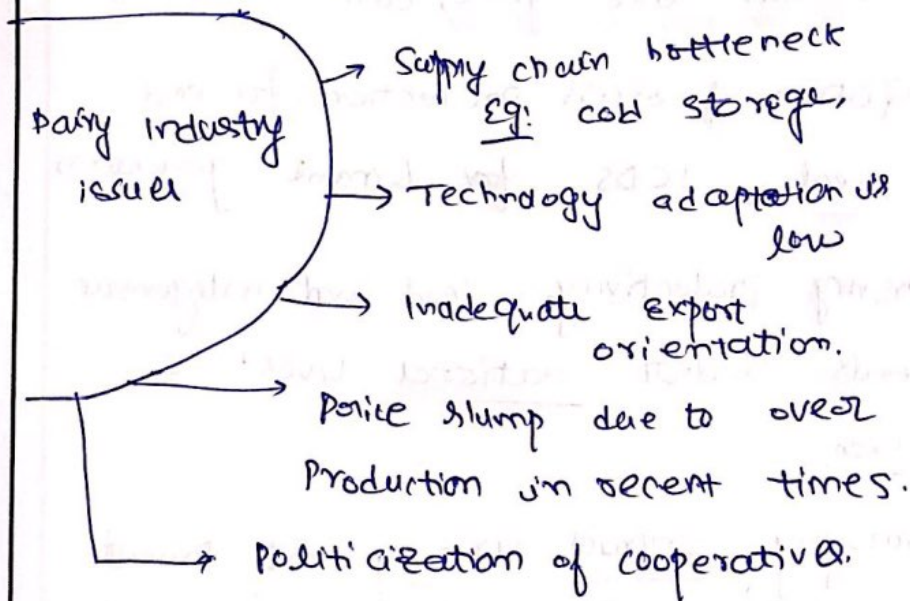 Dairy industry
issues
Supply chain bottleneck
Eg: cold storage,
Technology adaptation is
low
Inadequate export
orientation.
Price slump due to over
Production in recent times.
Politicization of cooperatives.